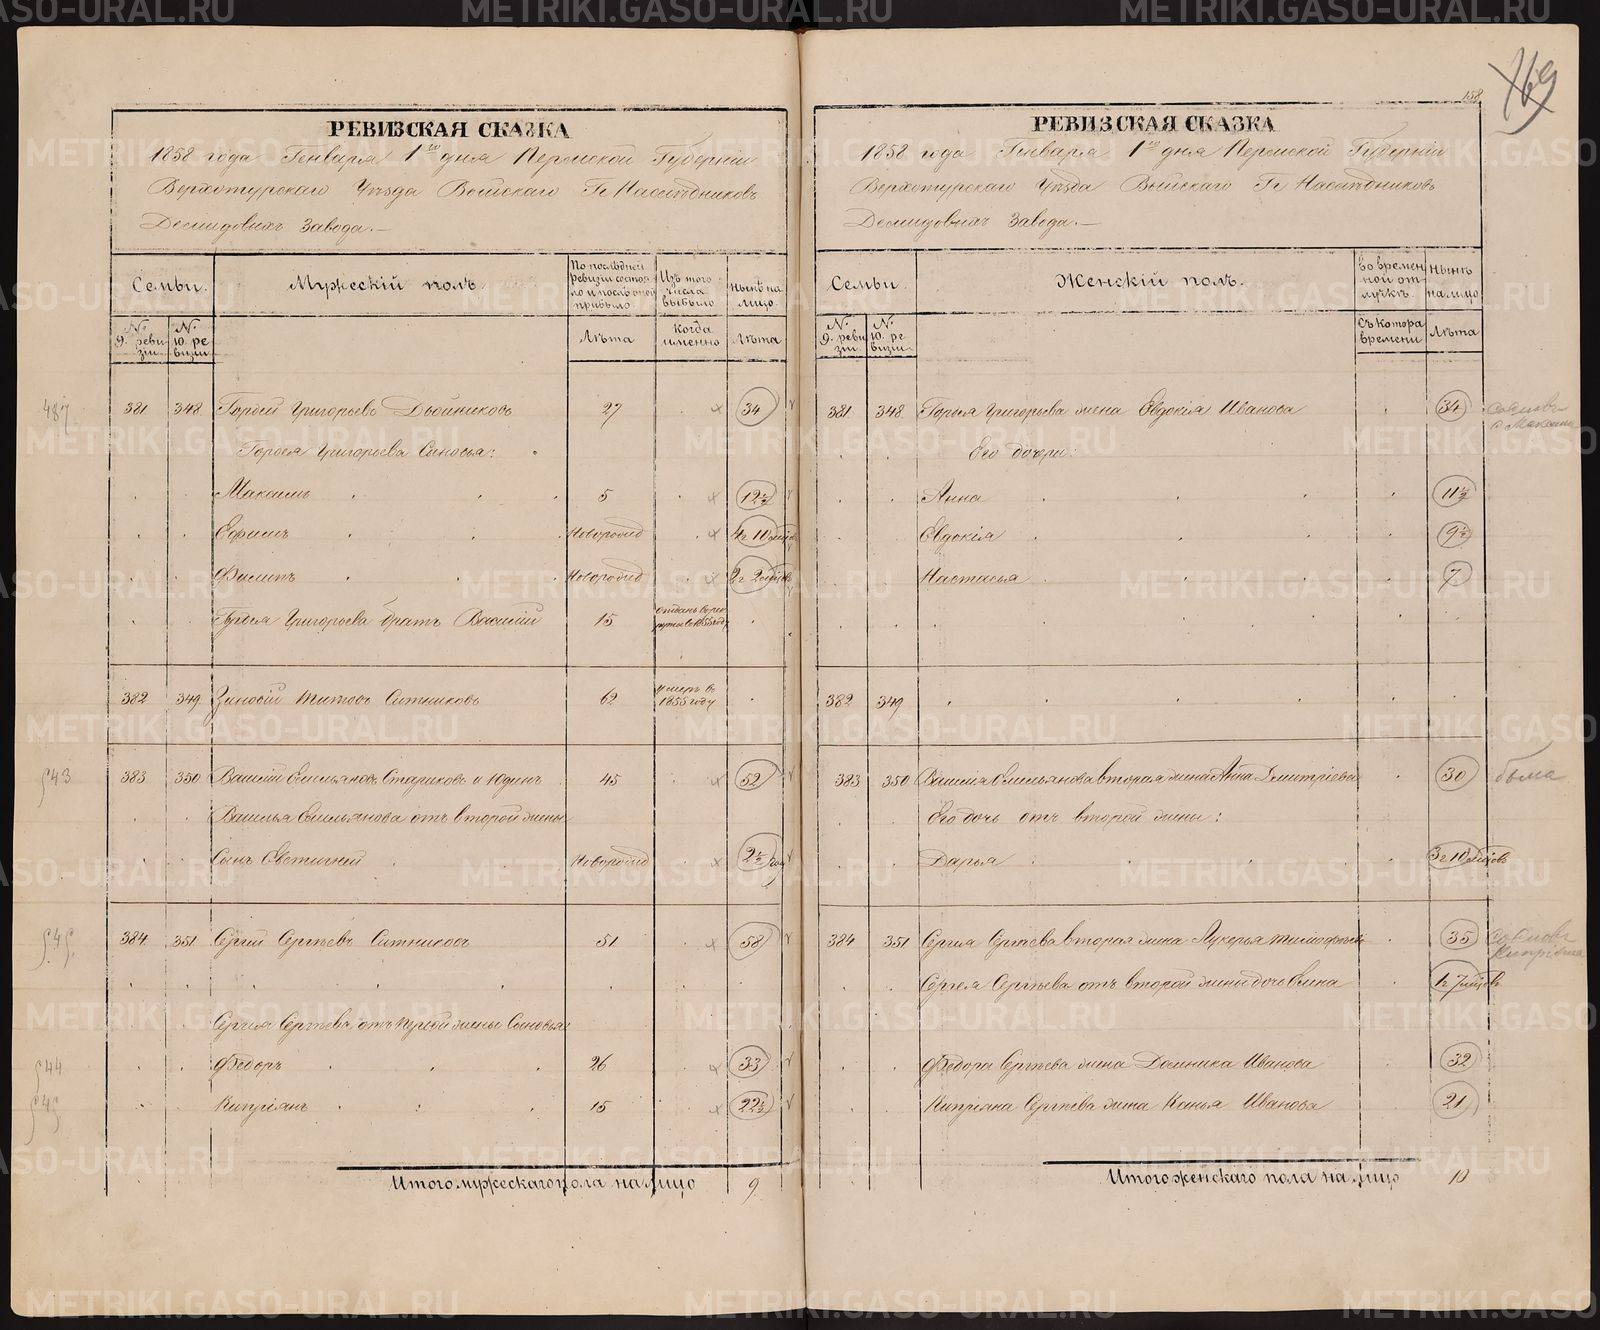 158
169
РЕВИЗСКАЯ СКАЗКА
1858 года Генваря 1го дня Пермской Губерніи
Верхотурскаго Уѣзда Выйскаго Гг Наслѣдниковъ
Демидовыхъ Завода.—
Семьи.
Мужескій полъ.
По послѣдней ревизіи состояло и послѣ того прибыло.
Изъ того числа выбыло
Нынѣ на лицо.
№ 9. ревизіи.
№ 10. ревизіи.
Лѣта
Когда именно
Лѣта
487 381 348 Гордѣй Григорьевъ Двойниковъ 27 34
Гордея Григорьева Сыновья:
Максимъ 5 12½
Ефимъ Новорожд 4г 10 мѣсцов
Филипъ Новорожд 2г 2 мѣсцов
Гордея Григорьева братъ Василій 15 отданъ в рекруты въ 1855 году
382 349 Зиновій Титовъ Ситниковъ 62 умеръ въ 1855 году
543 383 350 Василій Емельяновъ Стариковъ и Юдинъ 45 52
Василья Емельянова отъ второй жены
Сынъ Евстигней Новорожд 2½ год
545 384 351 Сергій Сергѣевъ Ситниковъ 51 58
Сергея Сергѣева отъ первой жены Сыновья:
544 Федоръ 26 33
545 Кипріянъ 15 22½
Итого мужескаго пола на лицо 9
РЕВИЗСКАЯ СКАЗКА
1858 года Генваря 1го дня Пермской Губерніи
Верхотурскаго Уѣзда Выйскаго Гг Наслѣдниковъ
Демидовыхъ Завода.—
Семьи.
Женскій полъ.
Во временной отлучкѣ.
Нынѣ на лицо.
№ 9. ревизіи.
№ 10. ревизіи.
Съ котора времени
Лѣта
381 348 Гордея Григорьева жена Евдокія Иванова 34
Его дочери:
Анна 11½
Евдокія 9½
Настасья 7
382 349
383 350 Василія Емельянова вторая жена Анна Дмитріева 30
Его дочь отъ второй жены:
Дарья 3г 10 мѣсцовъ
384 351 Сергея Сергѣева вторая жена Лукерья Тимофеева 35
Сергея Сергѣева отъ второй жены дочь Елена 1г 7 мѣсцовъ
Федора Сергѣева жена Домника Иванова 32
Кипріяна Сергѣева жена Ксенья Иванова 21
Итого женскаго пола на лицо 10
METRIKI.GASO-URAL.RU